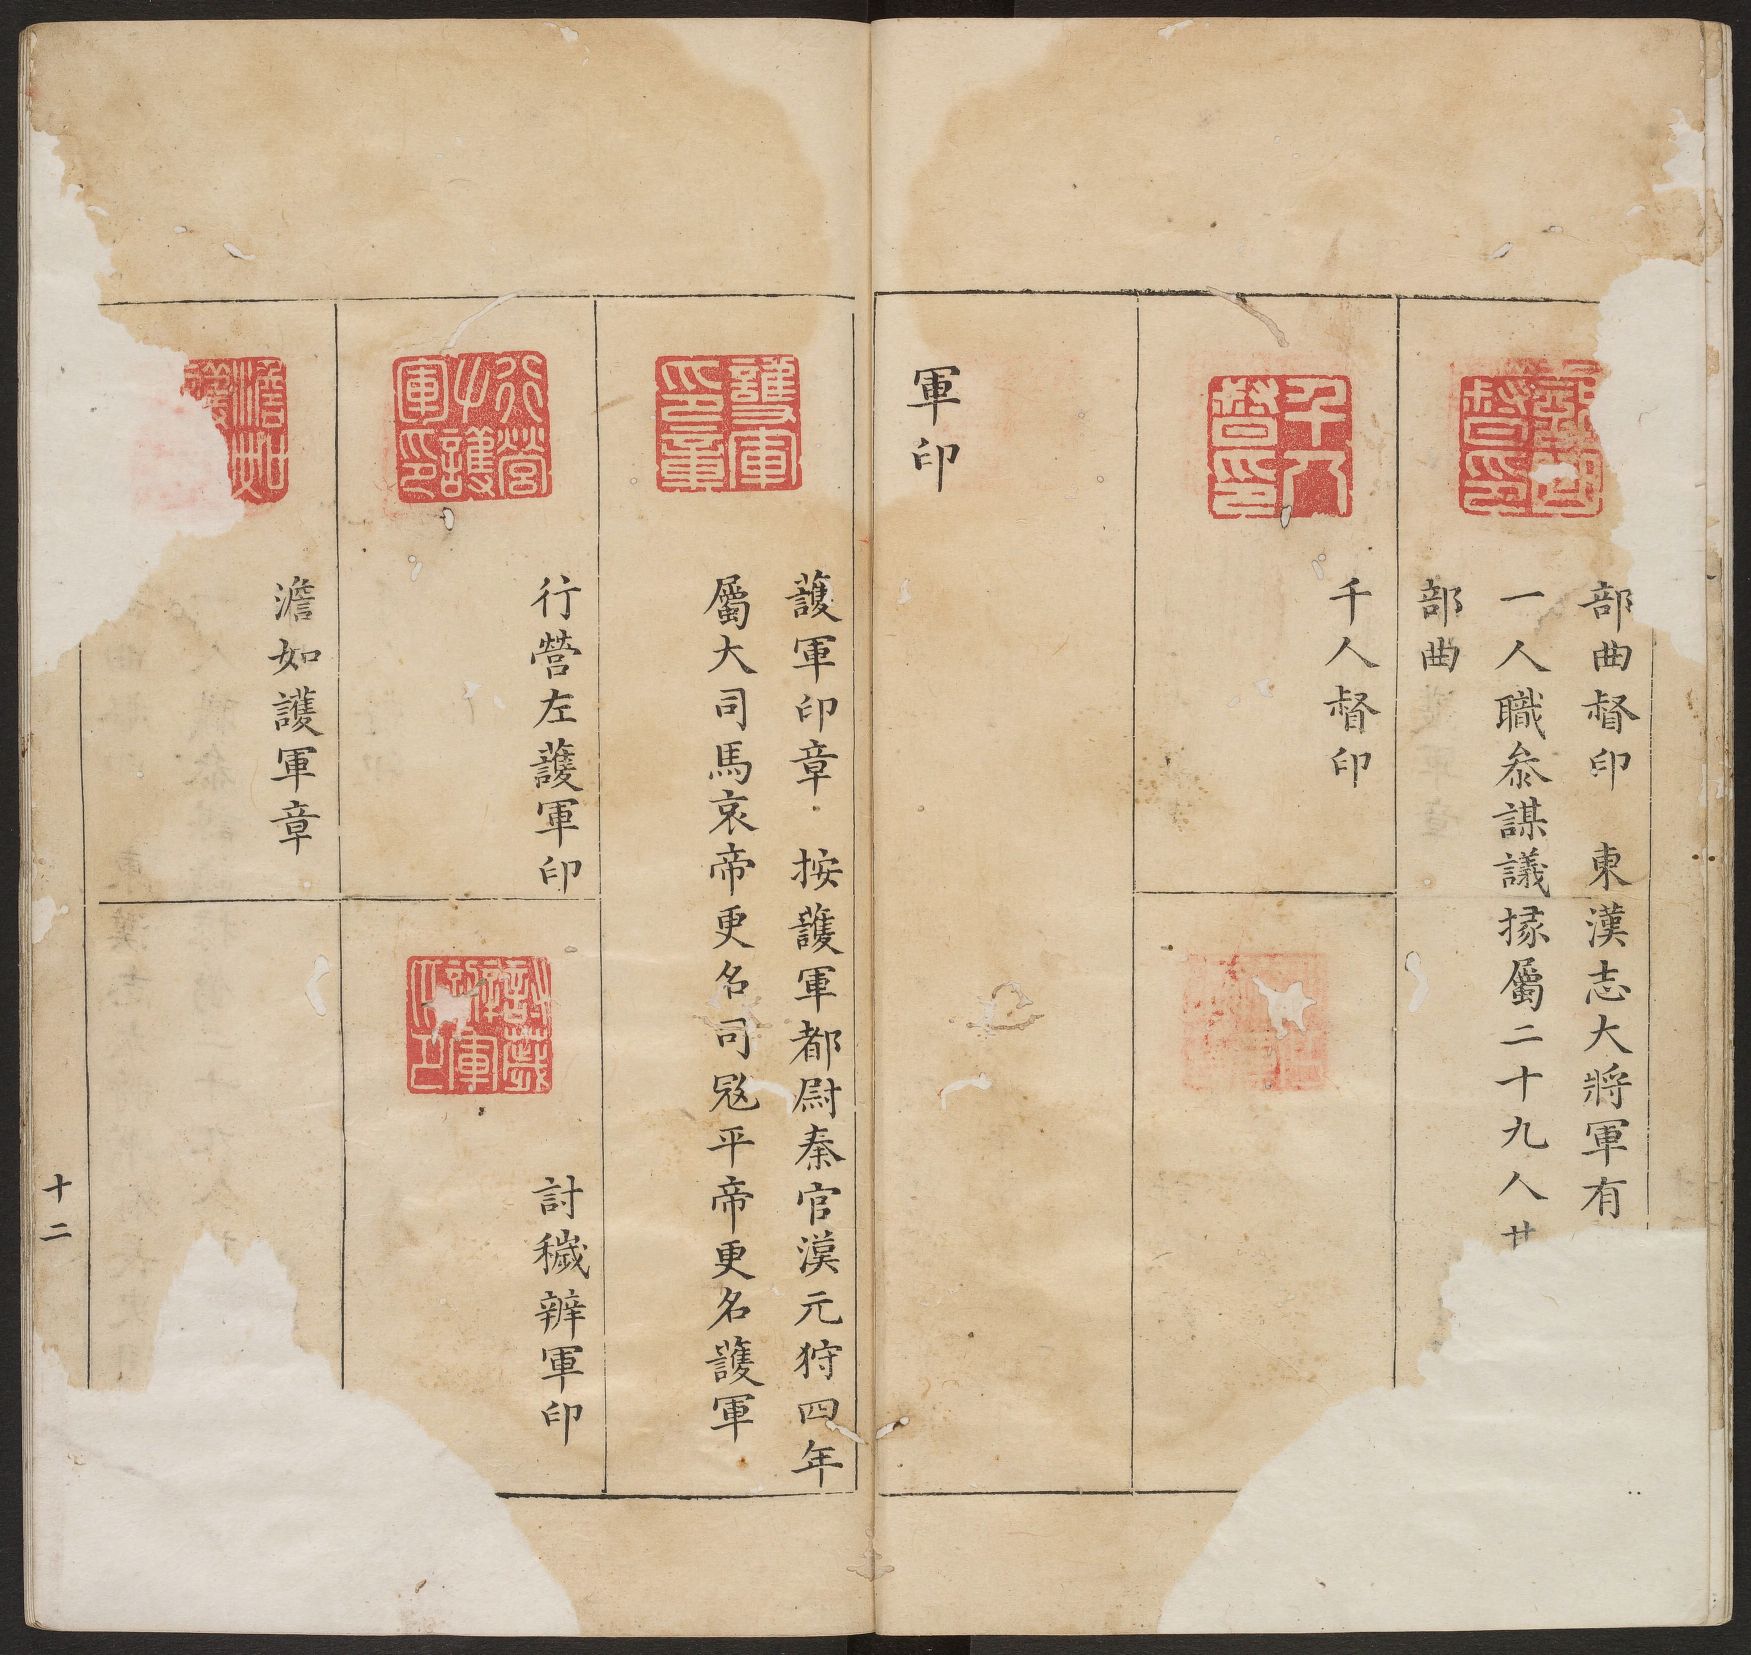 部曲督印　東漢志大將軍有
一人職叅謀議掾屬二十九人
部曲
千人督印
軍印
護軍印章　按護軍都尉秦官漢元狩四年
屬大司馬哀帝更名司寇平帝更名護軍
行營左護軍印
討穢辨軍印
澹如護軍章
十二